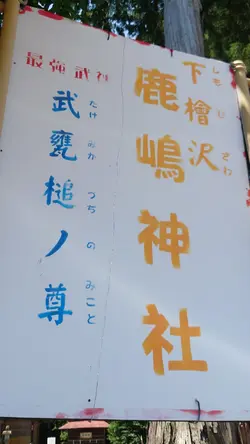 下檜沢
しもひざわ
鹿嶋神社
最強武神
武甕槌ノ尊
たけみかつちのみこと